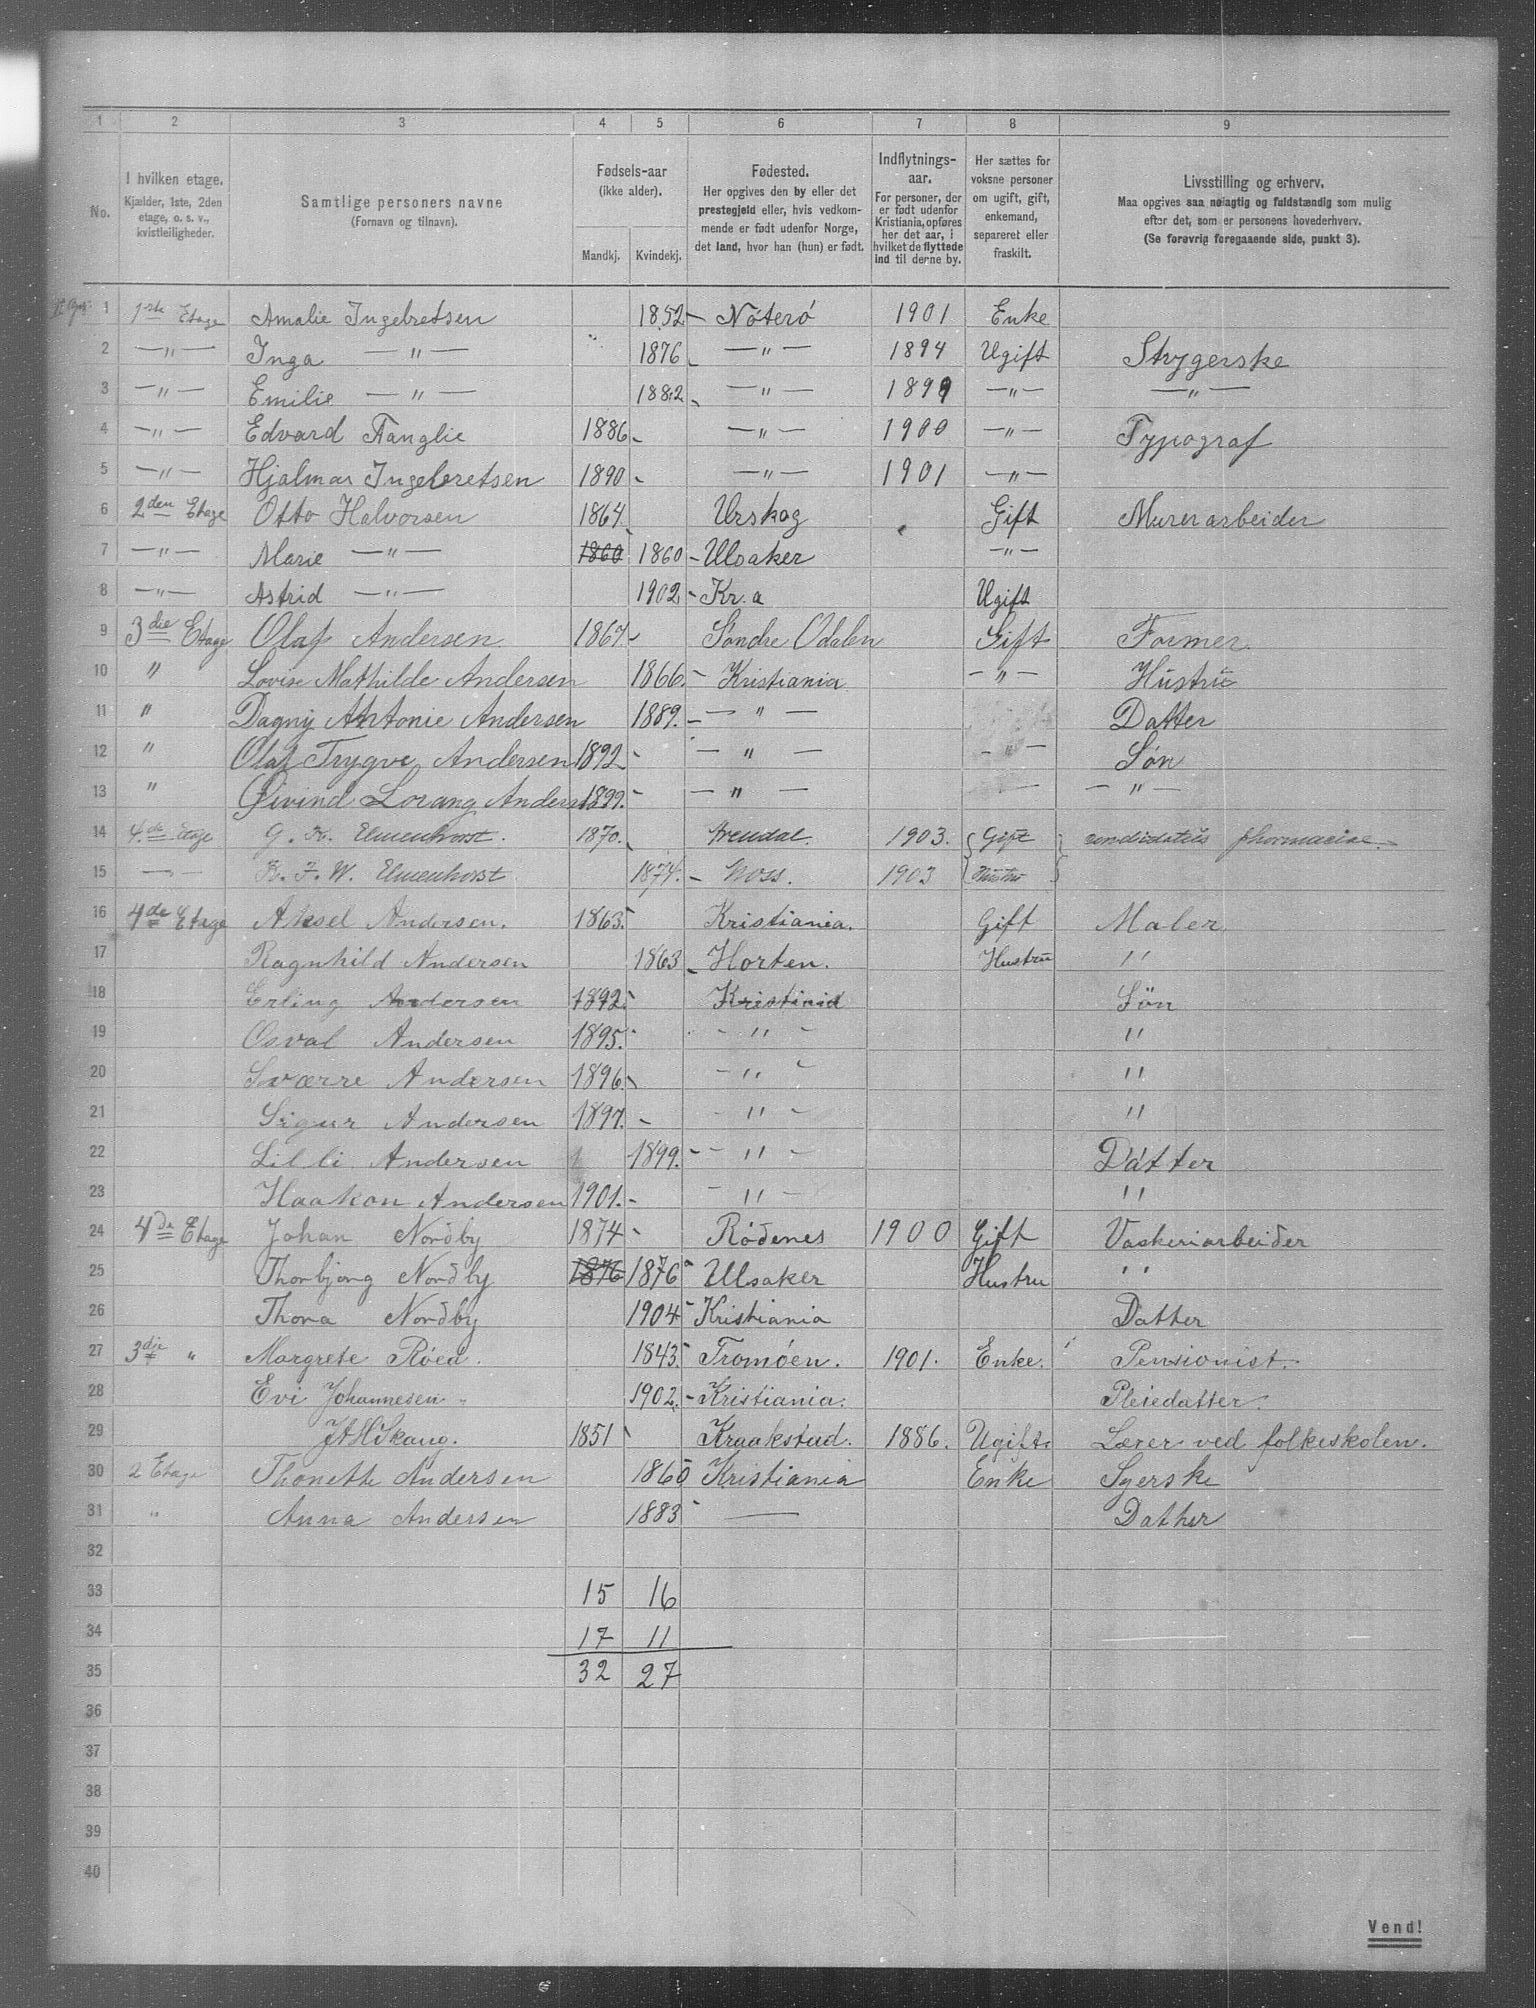 1 2 3 4 5 6 7 8 9
No. I hvilken etage. Kjælder, 1ste, 2den etage, o. s. v., kvistleiligheder. Samtlige personers navne (Fornavn og tilnavn). Fødsels-aar (ikke alder). Mandkj. Kvindekj. Fødested. Her opgives den by eller det prestegjeld eller, hvis vedkommende er født udenfor Norge, det land, hvor han (hun) er født. Indflytnings-aar. For personer, der er født udenfor Kristiania, opføres her det aar, i hvilket de flyttede ind til derne by. Her sættes for voksne personer om ugift, gift, enkemand, separeret eller fraskilt. Livsstilling og erhverv. Maa opgives saa nøiagtig og fuldstændig som mulig efter det, som er personens hovederhverv. (Se forøvrig foregaaende side, punkt 3).
1 1ste Etage Amalie Ingebretsen 1852 – Nøterø 1901 Enke
2 —"— Inga —"— 1876 – —"— 1894 Ugift Strygerske
3 —"— Emilie —"— 1882 – —"— 1899 —"— —"—
4 —"— Edvard Tanglie 1886 – —"— 1900 —"— Typograf
5 —"— Hjalmar Ingebretsen 1890 – —"— 1901 —"—
6 2den Etage Otto Halvorsen 1864 Urskog Gift Murerarbeider
7 —"— Marie —"— 1860 1860 – Ulsaker —"—
8 —"— Astrid —"— 1902 – Kr.a Ugift
9 3die Etage Olaf Andersen 1867 – Søndre Odalen Gift Former
10 " Lovise Mathilde Andersen 1866 – Kristiania —"— Hustru
11 " Dagny Antonie Andersen 1889. – —"— Datter
12 " Olaf Trygve Andersen 1892 – —"— —"— Søn
13 " Øivind Lorang Anders 1899. – —"— —"—
14 4de Etage G. Fr. Elmenhorst. 1870. Arendal. 1903. Gift candidatus pharmaciae.
15 —"— F. W. Elmenhorst 1874. – Moss. 1903 Hustru
16 4de Etage Aksel Andersen. 1863. Kristiania. Gift Maler
17 Ragnhild Andersen 1863 – Horten. Hustru "
18 Erling Andersen 1892 – Kristinia Søn
19 Osval Andersen 1895. – " – "
20 Sværre Andersen 1896. – " – "
21 Sigur Andersen 1897. – – " – "
22 Lilli Andersen 1899. – – " – Datter
23 Haakon Andersen 1901. – – " – "
24 4de Etage Johan Nordby 1874 – Rødenes 1900 Gift Vaskeriarbeider
25 Thorbjørg Nordby 1876 1876 – Ulsaker Hustru "
26 Thora Nordby 1904 – Kristiania Datter
27 3die " Margrete Røed. 1843. Tromøen. 1901. Enke. Pensionist.
28 Evi Johannesen 1902. – Kristiania. Pleiedatter.
29 J A H Skaug. 1851 Kraakstad. 1886. Ugift. Lærer ved folkeskolen.
30 2 Etage Thonette Andersen 1860 Kristiania Enke Syerske
31 " Anna Andersen 1883 – — Dather
32
33 15 16
34 17 11
35 32 27
36
37
38
39
40
Vend!